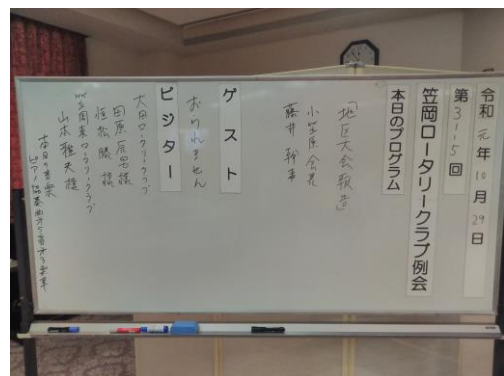 令和 元年 10月 29日
第3115回
笠岡ロータリークラブ例会
本日のプログラム
「地区大会報告」
小笠原会長
藤井 幹事
ゲスト
おられません
ビジター
大田ロータリークラブ
田原 辰男様
恒松 勝 様
笠岡東ロータリークラブ
山本 雅夫様
本日の音楽
ピアノ協奏曲